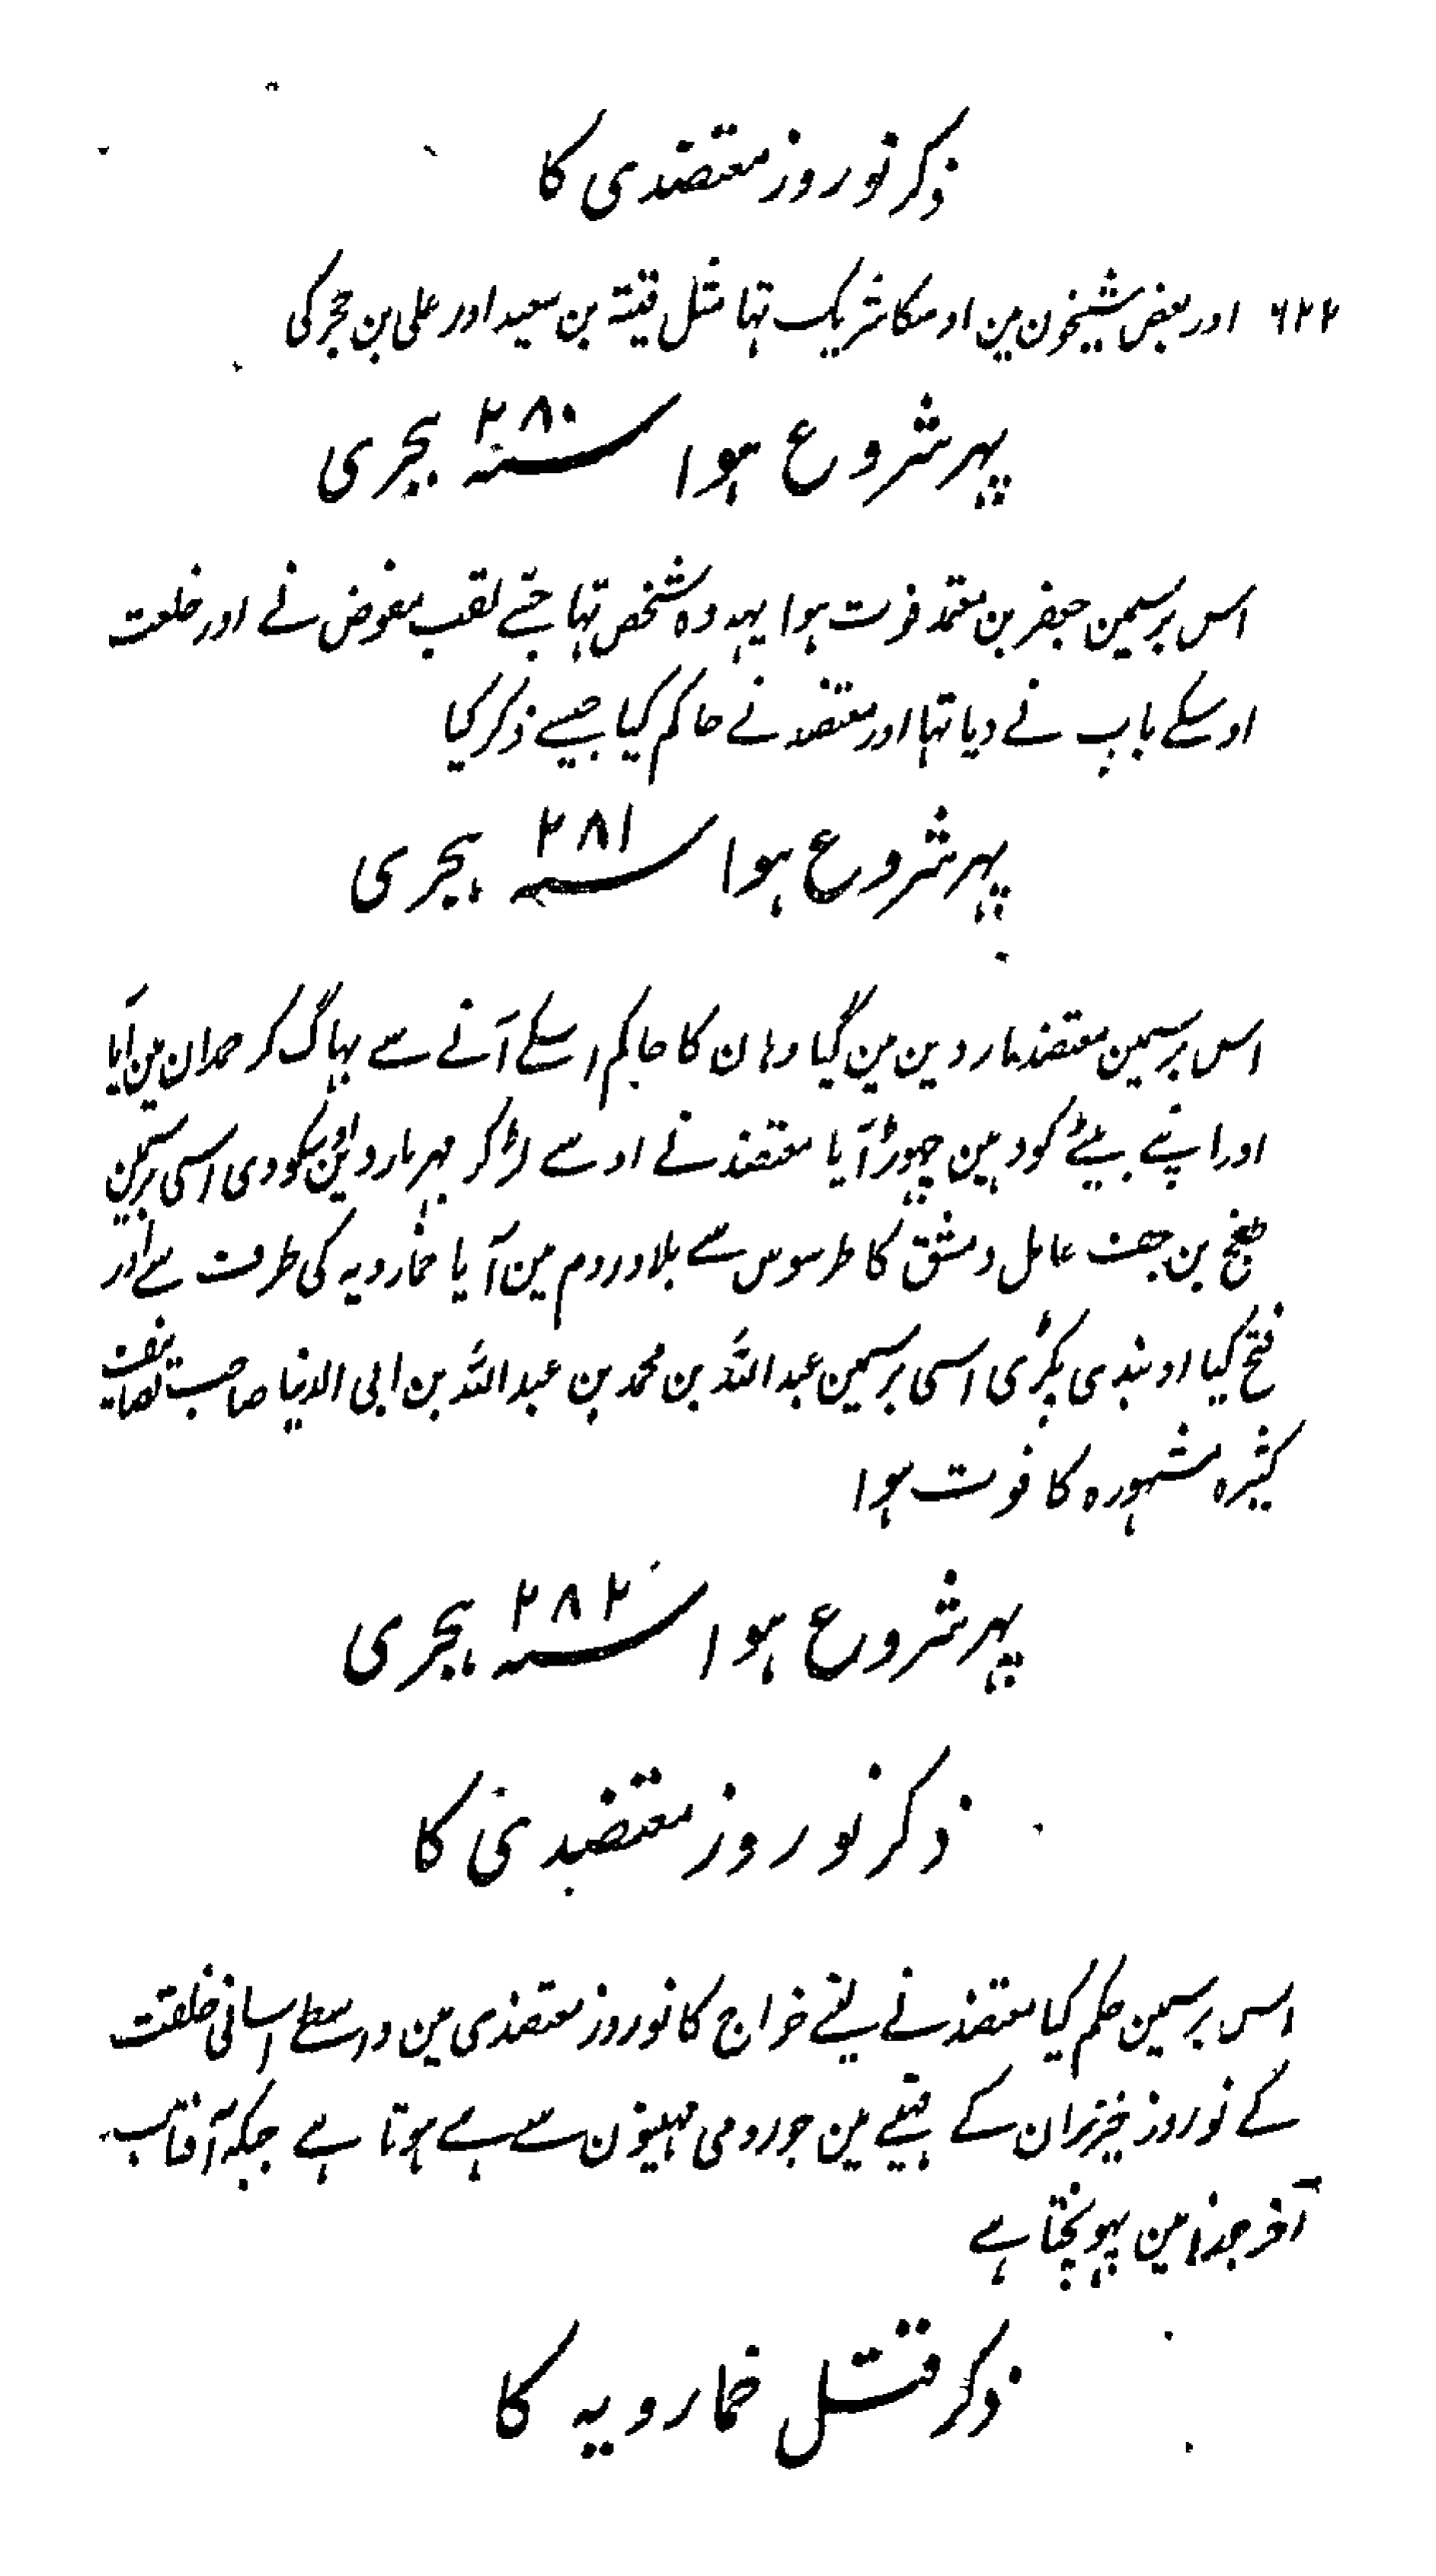 ذکر نوروز معتضدی کا
۶۲۲ اور بعض شیخون مین اوسکا شریک تہا مثل قیتبہ بن سعید اور علی بن حجر کی
پہر شروع ہوا سنہ ۲۸۰ ہجری
اس برسمین جعفر بن معتمد فوت ہوا یہہ وہ شخص تہا جسے لقب مفوض نے اور خلعت
اوسکے باپ نے دیا تہا اور معتضد نے حاکم کیا جیسے ذکر کیا
پہر شروع ہوا سنہ ۲۸۱ ہجری
اس برسمین معتضد ماردین مین گیا وہان کا حاکم اسکے آنے سے بہاگ کر حمدان مین آیا
اور اپنے بیٹے کو وہین چہوڑ آیا معتضد نے اوسے لڑ کر پہر ماردین اسکو دی اسی برسمین
طغج بن جف عامل دمشق کا طرسوس سے بلاد روم مین آیا خمارویہ کی طرف سے اور
فتح کیا اور بندی پکڑی اسی برسمین عبد اللہ بن محمد بن عبد اللہ بن ابی الدنیا صاحب تصانیف
کثیرہ مشہورہ کا فوت ہوا
پہر شروع ہوا سنہ ۲۸۲ ہجری
ذکر نوروز معتضدی کا
اس برسمین حکم کیا معتضد نے لینے خراج کا نوروز معتضدی مین واسطے اسانی خلقت
کے نوروز خیزران کے مہینے مین جو رومی مہینون سے ہے ہوتا ہے جبکہ آفتاب
آخر جوزا مین پہونچتا ہے
ذکر قتل خمارویہ کا